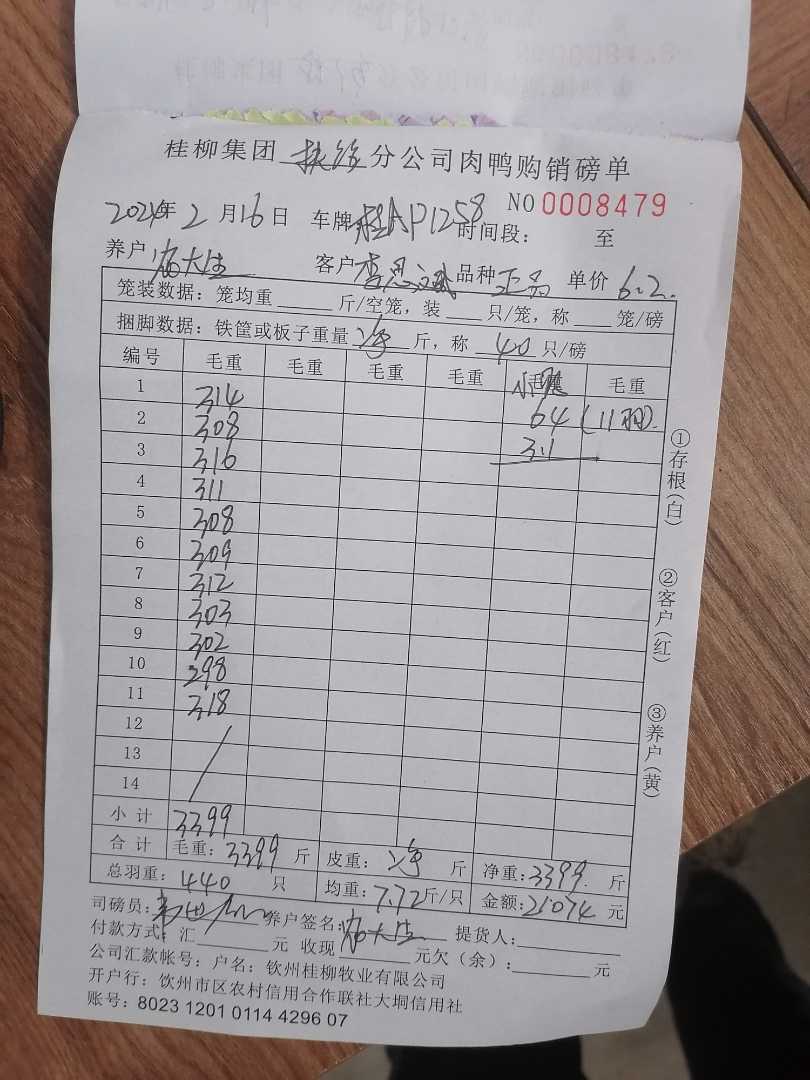 桂柳集团 分公司肉鸭购销磅单
NO 0008479
2024年 2 月 16 日 车牌 桂AP1258 时间段: 至
养户 大生 客户 李思 品种 正品 单价 6.2.
笼装数据: 笼均重 斤/空笼, 装 只/笼, 称 笼/磅
捆脚数据: 铁筐或板子重量 净 斤, 称 40 只/磅
编号 毛重 毛重 毛重 毛重 毛重 毛重
1 314 64 (11羽).
2 308 3.1
3 316
4 311
5 308
6 309
7 312
8 303
9 302
10 298
11 318
12
13
14
小计 3399
合计 毛重: 3399 斤 皮重: 净 斤 净重: 3399. 斤
总羽重: 440 只 均重: 7.72 斤/只 金额: 21074 元
司磅员: 养户签名: 大生 提货人:
付款方式: 汇 元 收现 元欠(余): 元
公司汇款帐号: 户名: 钦州桂柳牧业有限公司
开户行: 钦州市区农村信用合作联社大垌信用社
账号: 8023 1201 0114 4296 07
①存根(白)
②客户(红)
③养户(黄)